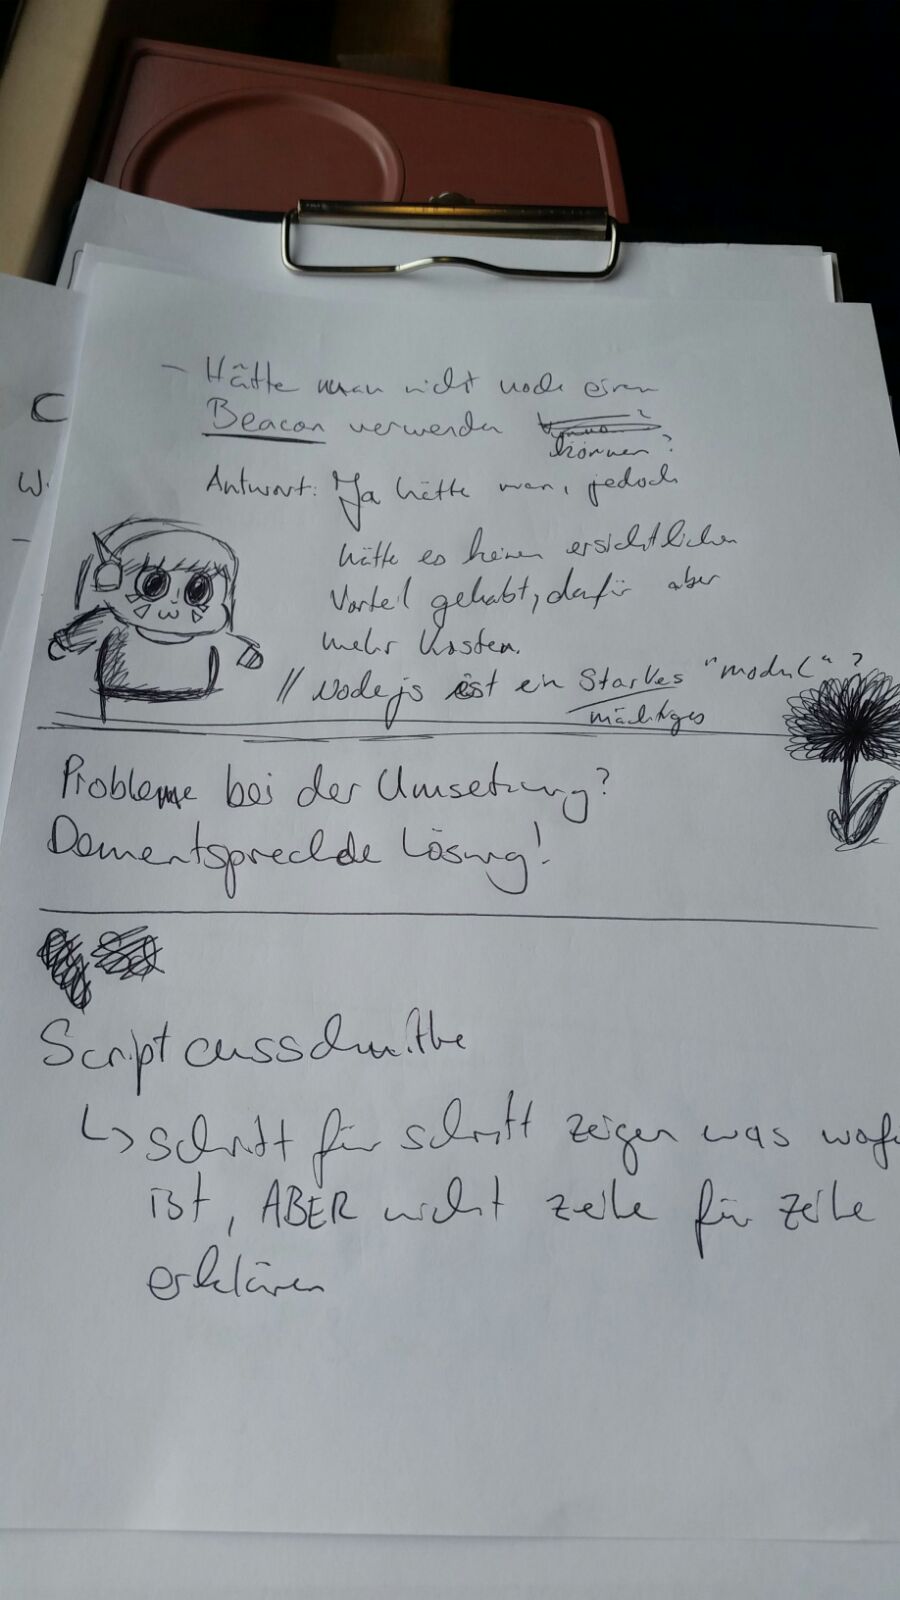 - Hätte man nicht noch einen
Beacon verwenden
können?
Antwort: Ja hätte man, jedoch
hätte es keinen ersichtlichen
Vorteil gehabt, dafür aber
mehr Kosten.
// Nodejs ist ein Starkes "modul"?
mächtiges
Probleme bei der Umsetzung?
Dementsprechde Lösung!
C
W.
-
Scriptausschnitte
↳ schritt für schritt zeigen was wofü
ist, ABER nicht zeile für zeile
erklären